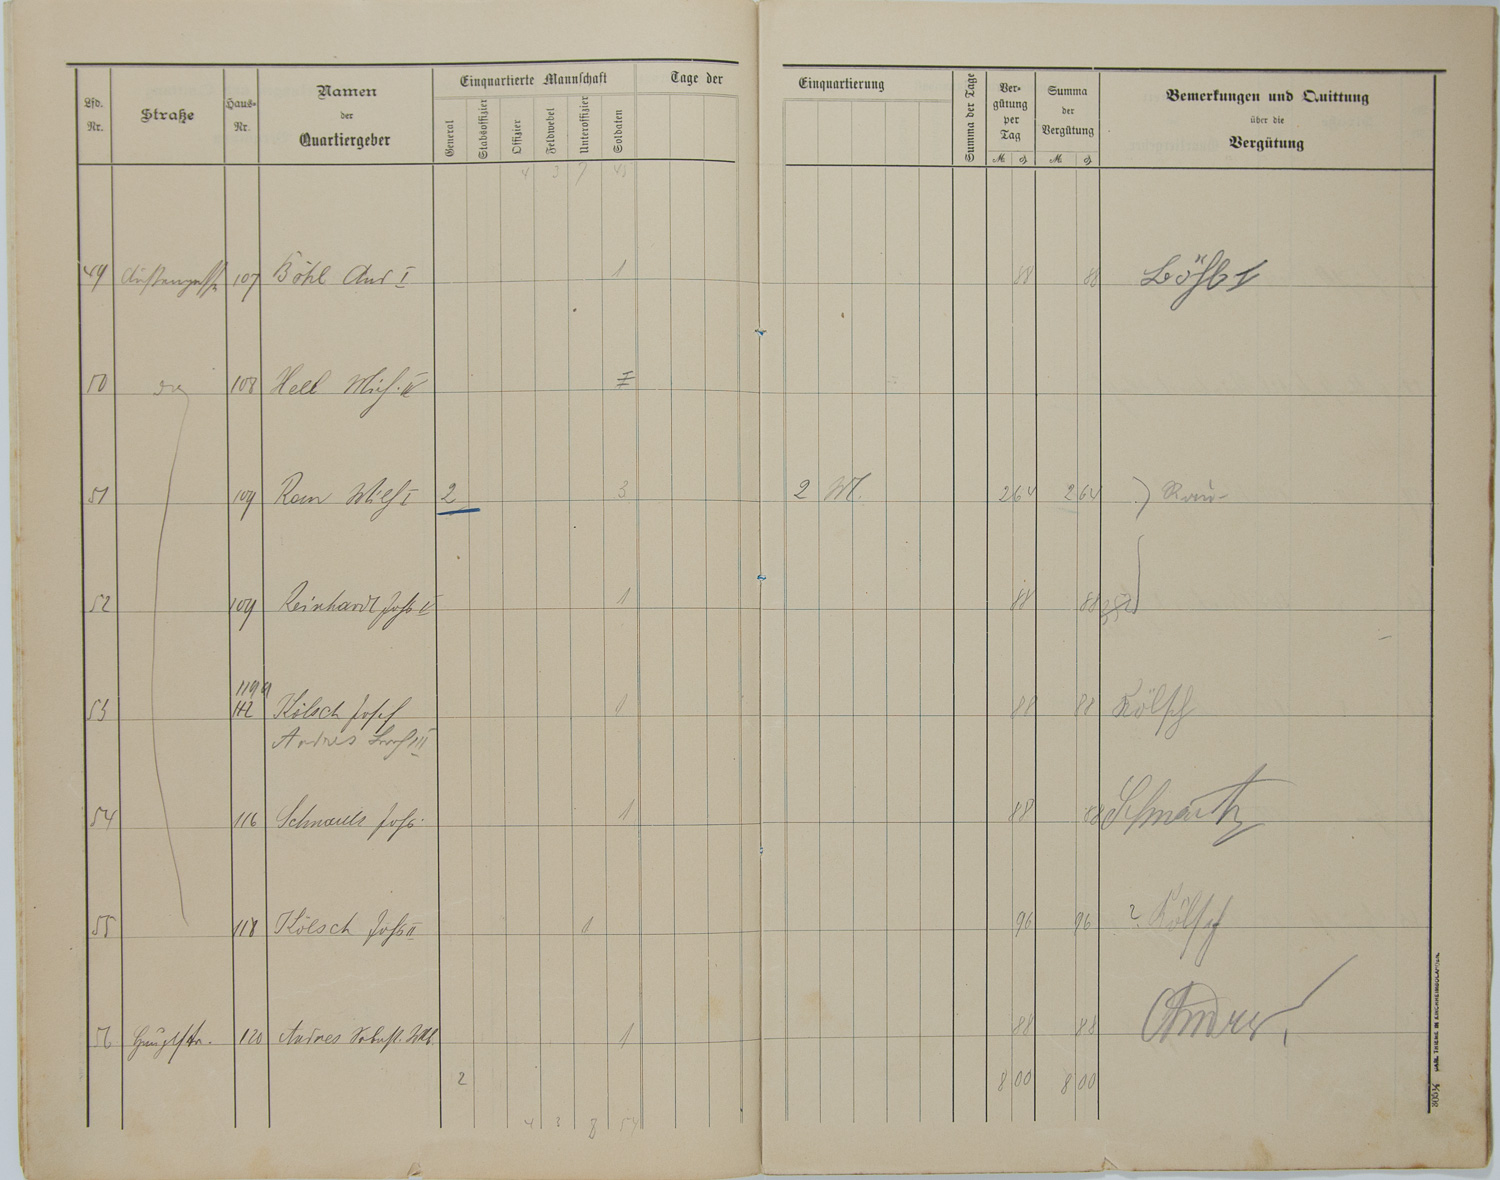 Lfd. Nr. Straße Haus-Nr. Namen der Quartiergeber Einquartierte Mannschaft Tage der Einquartierung Summa der Tage Vergütung per Tag Summa der Vergütung Bemerkungen und Quittung über die Vergütung
General Stabsoffizier Offizier Feldwebel Unteroffizier Soldaten M. ₰ M. ₰
4 3 7 45
49 107 Böhl And I 1 88 88 Böhl I
50 108 Hell Mich. II I
51 109 Rau Wilh I 2 3 2 M. 2 64 2 64 Rau
52 109 Reinhardt Johs 1 88 88
53 119a 112 Kölsch Josef 1 88 88 Kölsch
Andres III
54 116 Schmault Johs. 1 88 88
55 118 Kölsch Johs II 1 96 96 ? Kölsch
56 Hauptstr. 120 Andres 1 88 88 Andres
2 8 00 8 00
4 3 8 54